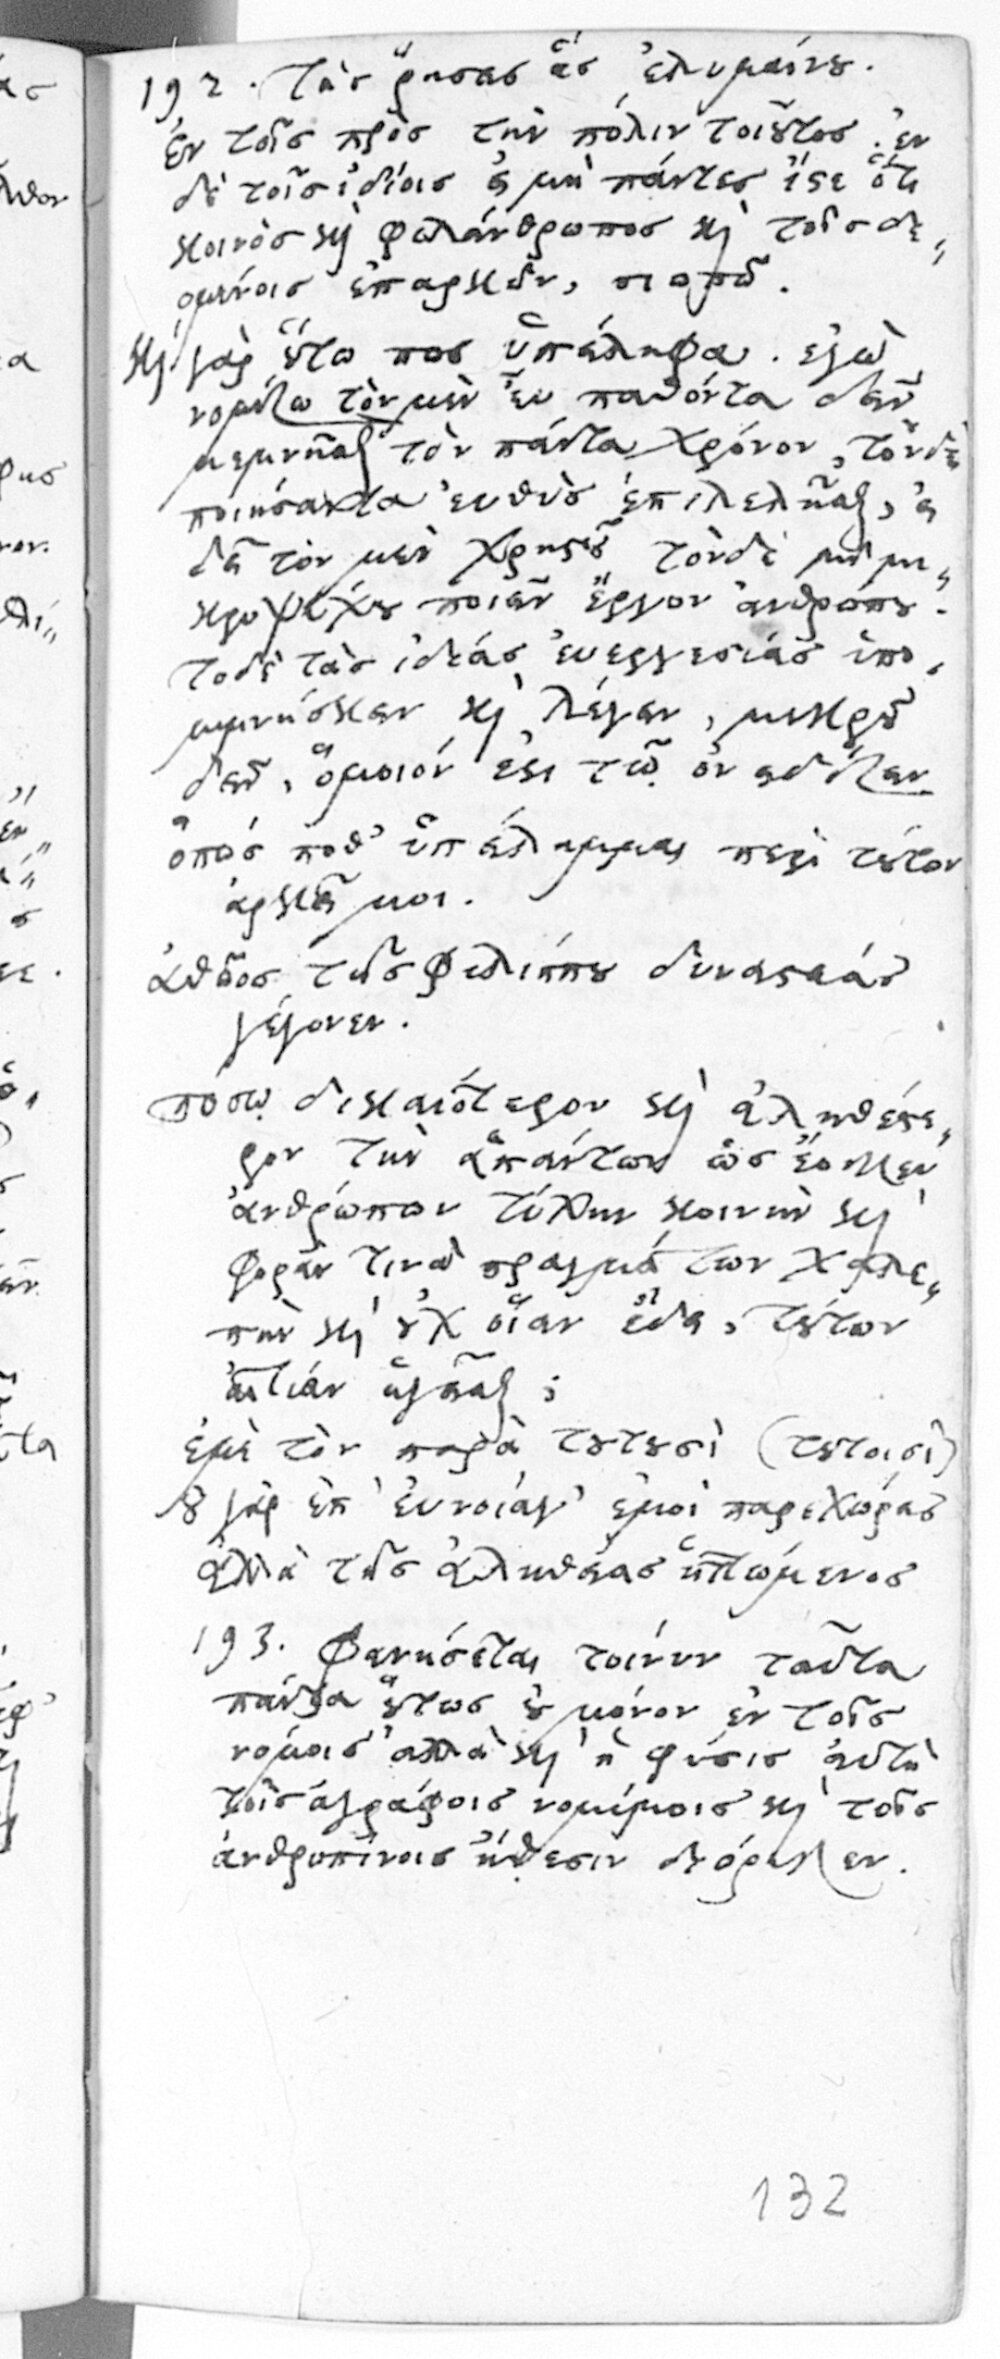 192. τὰς ῥήσεις ἃς ἐλυμαίνου.
ἐν τοῖς πρὸς τὴν πόλιν τοιοῦτος. ἐν
δὲ τοῖς ἰδίοις εἰ μὴ πάντες ἴστε ὅτι
κοινὸς καὶ φιλάνθρωπος καὶ τοῖς δε„
ομένοις ἐπαρκῶν, σιωπῶ.
καὶ γὰρ οὕτω πως ὑπείληφα. ἐγὼ
νομίζω τὸν μὲν εὖ παθόντα δεῖν
μεμνῆσθαι τὸν πάντα χρόνον, τὸν δὲ
ποιήσαντα εὐθὺς ἐπιλελῆσθαι, εἰ
δεῖ τὸν μὲν χρηστοῦ τὸν δὲ μὴ μι„
κροψύχου ποιεῖν ἔργον ἀνθρώπου.
τὸ δὲ τὰς ἰδίας εὐεργεσίας ὑπο„
μιμνήσκειν καὶ λέγειν, μικροῦ
δεῖν, ὅμοιόν ἐστι τῷ ὀνειδίζειν.
ὅπως ποθ᾽ ὑπείλημμαι περὶ τούτων
ἀρκεῖ μοι.
ἀθῷος τῆς Φιλίππου δυναστείας
γέγονεν.
πόσῳ δικαιότερον καὶ ἀληθέστε„
ρον τὴν ἁπάντων ὡς ἔοικεν
ἀνθρώπων τύχην κοινὴν καὶ
φορὰν τινὰ πραγμάτων χαλε„
πὴν καὶ οὐχ οἵαν ἔδει, τούτων
αἰτίαν ἡγεῖσθαι;
ἐμὲ τὸν παρὰ τουτουσὶ (τουτοισὶ)
οὐ γὰρ ἐπ᾽ εὐνοίας ἐμοὶ παρεχώρεις
ἀλλὰ τῆς ἀληθείας ἡττώμενος
193. Φανήσεται τοίνυν ταῦτα
πάντα οὕτως οὐ μόνον ἐν τοῖς
νόμοις ἀλλὰ καὶ ἡ φύσις αὐτὴ
τοῖς ἀγράφοις νομίμοις καὶ τοῖς
ἀνθρωπίνοις ἤθεσιν διώρικεν.
132